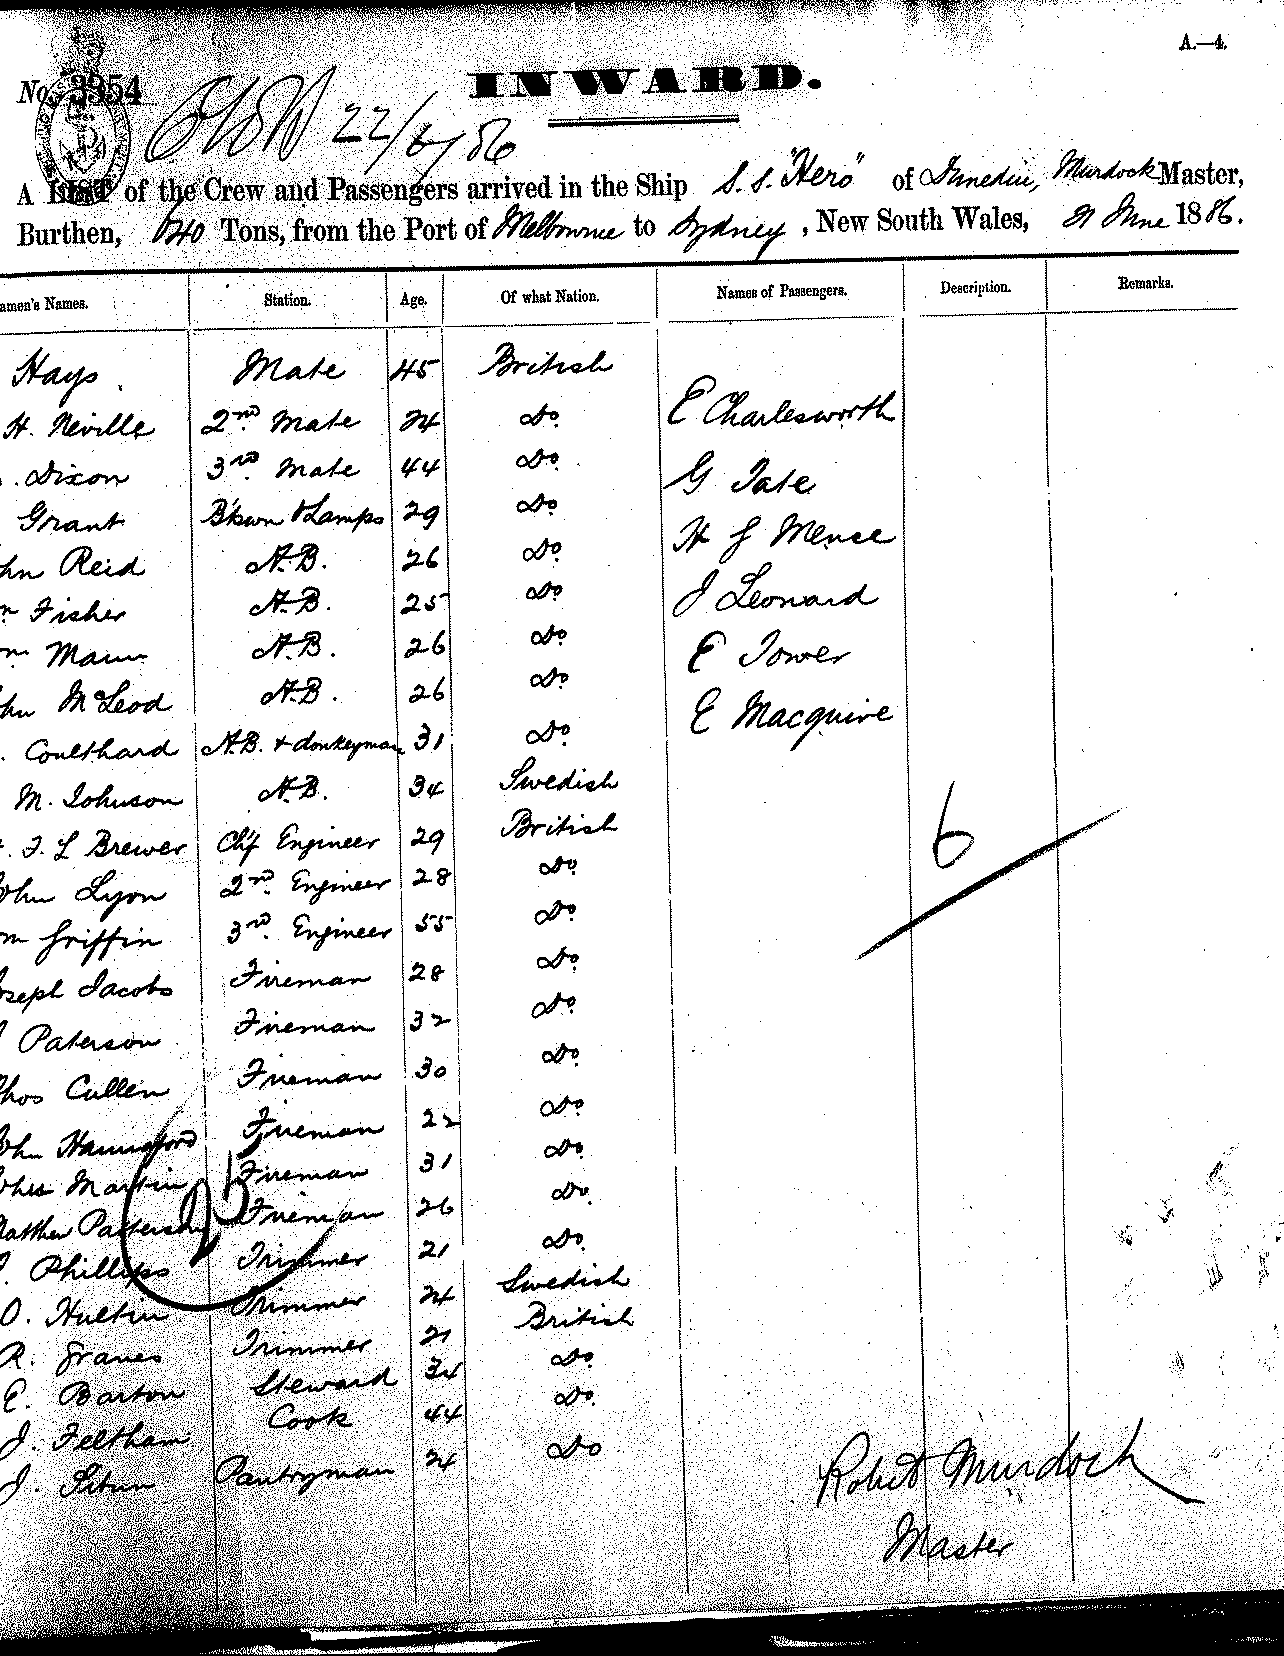 A.—4.
No. 3354
INWARD.
22/6/86
A LIST of the Crew and Passengers arrived in the Ship S.S. "Hero" of Dunedin, Murdock Master,
Burthen, 640 Tons, from the Port of Melbourne to Sydney, New South Wales, 21 June 1886.
amen's Names. Station. Age. Of what Nation. Names of Passengers. Description. Remarks.
Hays Mate 45 British
H. Neville 2nd Mate 24 Do E Charlesworth
. Dixon 3rd Mate 44 Do G Tate
Grant B'swn & Lamps 29 Do H J Mense
hn Reid A.B. 26 Do J Leonard
m Fisher A.B. 25 Do
m Mann A.B. 26 Do E Tower
hn McLeod A.B. 26 Do E Macquire
. Coulthard A.B. & donkeyman 31 Do
M. Johnson A.B. 34 Swedish
. F. L Brewer Chf Engineer 29 British 6
ohn Lyon 2nd Engineer 28 Do
m Griffin 3rd Engineer 55 Do
oseph Jacobs Fireman 28 Do
Paterson Fireman 32 Do
hos Cullen Fireman 30 Do
ohn Hannaford Fireman 22 Do
Martin Fireman 31 Do
25
atthew Patterson Fireman 26 Do
. Phillips Trimmer 21 Do
O. Hultin Trimmer 24 Swedish
R. Graves Trimmer 21 British
E. Barton Steward 34 Do
J. Feltham Cook 44 Do
J. Pantryman 24 Do
Robert Murdoch
Master